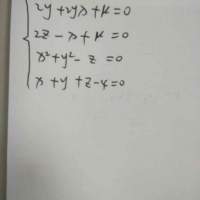 2y + 2yλ + μ = 0
2z - λ + μ = 0
x² + y² - z = 0
x + y + z - 4 = 0